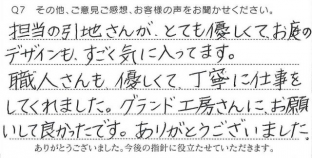 Q7 その他、ご意見ご感想、お客様の声をお聞かせください。
担当の引地さんが、とても優しくてお庭の
デザインも、すごく気に入ってます。
職人さんも、優しくて、丁寧に仕事を
してくれました。グランド工房さんに、お願
いして良かったです。ありがとうございました。
ありがとうございました。今後の指針に役立たせていただきます。